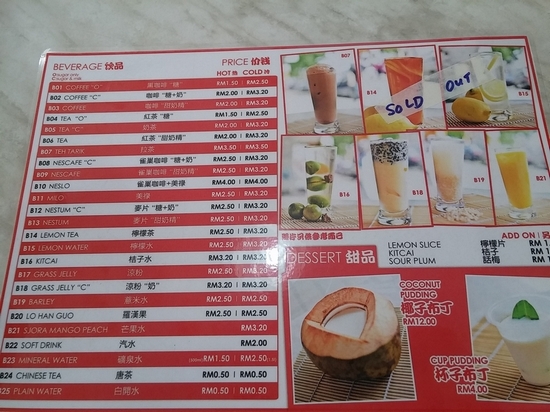 BEVERAGE 饮品 PRICE 价钱
O:sugar only
C:sugar & milk
HOT 热 COLD 冷
B01 COFFEE "O" 黑咖啡 "糖" RM1.50 | RM2.50
B02 COFFEE "C" 咖啡 "糖+奶" RM2.00 | RM3.20
B03 COFFEE 咖啡 "甜奶精" RM2.00 | RM3.20
B04 TEA "O" 紅茶 "糖" RM1.50 | RM2.50
B05 TEA "C" 奶茶 RM2.00 | RM3.20
B06 TEA 紅茶 "甜奶精" RM2.00 | RM3.20
B07 TEH TARIK 拉茶 RM2.50 | RM3.50
B08 NESCAFE "C" 雀巢咖啡 "糖+奶" RM2.50 | RM3.20
B09 NESCAFE 雀巢咖啡 "甜奶精" RM2.50 | RM3.20
B10 NESLO 雀巢咖啡+美祿 RM4.00 | RM4.00
B11 MILO 美祿 RM2.50 | RM3.20
B12 NESTUM "C" 麥片 "糖+奶" RM2.50 | RM3.20
B13 NESTUM 麥片 "甜奶精" RM2.50 | RM3.20
B14 LEMON TEA 檸檬茶 RM2.50 | RM3.20
B15 LEMON WATER 檸檬水 RM2.50 | RM3.20
B16 KITCAI 桔子水 RM2.50 | RM3.20
B17 GRASS JELLY 涼粉 RM2.50
B18 GRASS JELLY "C" 涼粉 "奶" RM3.20
B19 BARLEY 薏米水 RM2.50 | RM2.50
B20 LO HAN GUO 羅漢果 RM2.50 | RM2.50
B21 SJORA MANGO PEACH 芒果水 RM3.20
B22 SOFT DRINK 汽水 RM2.00
B23 MINERAL WATER 礦泉水 RM1.50 | RM2.50
B24 CHINESE TEA 唐茶 RM0.50 | RM0.50
B25 PLAIN WATER 白開水 RM0.50 | RM0.50
B07
B14
B15
SOLD OUT
B16
B18
B19
B21
ADD ON
LEMON SLICE 檸檬片 RM
KITCAI 桔子 RM
SOUR PLUM 話梅 RM
DESSERT 甜品
COCONUT PUDDING
椰子布丁
RM12.00
CUP PUDDING
杯子布丁
RM4.00